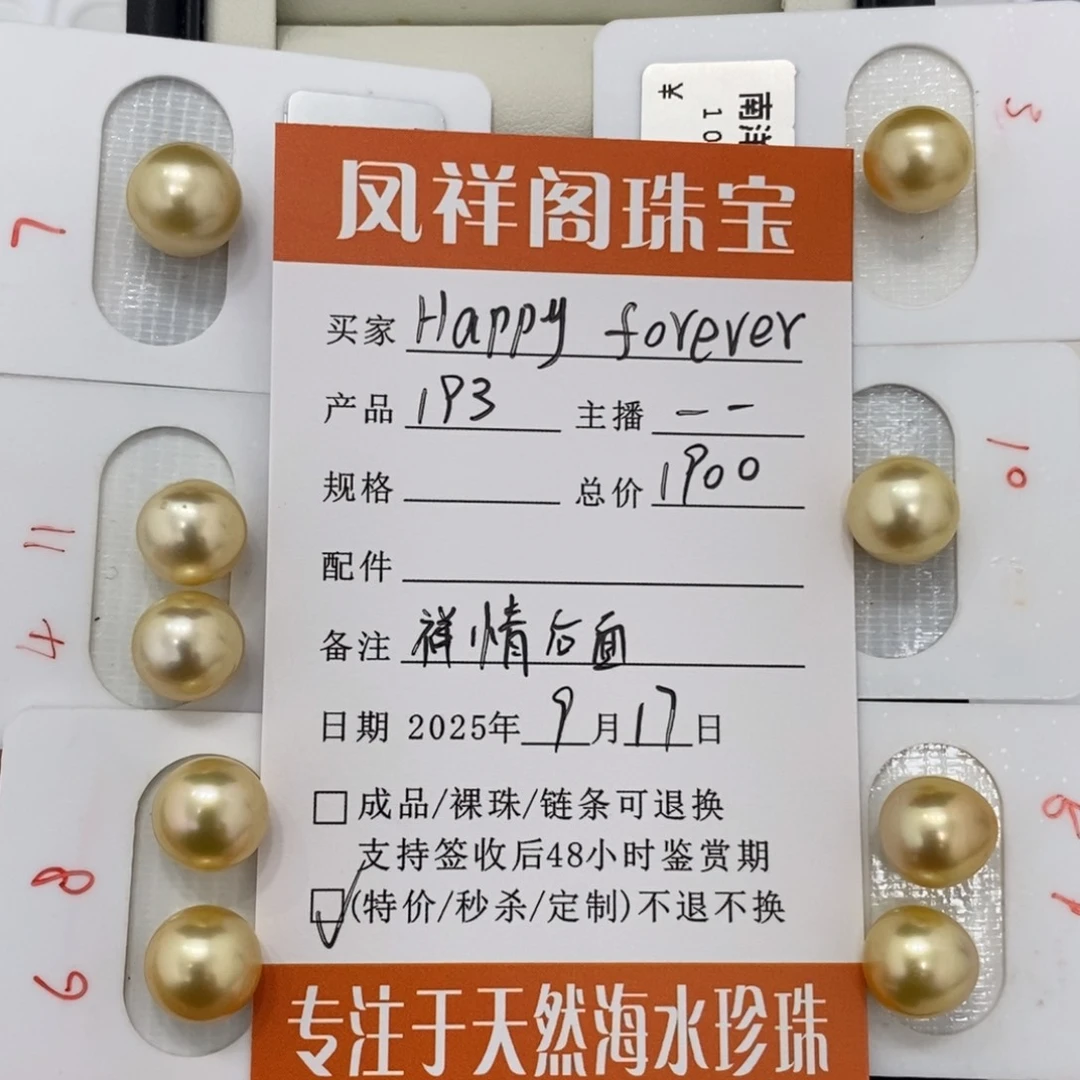 南洋
夫
10
凤祥阁珠宝
买家 Happy forever
产品 193 主播 --
规格 总价 1900
配件
备注 祥情后面
日期 2025年9月17日
成品/裸珠/链条可退换
支持签收后48小时鉴赏期
(特价/秒杀/定制)不退不换
专注于天然海水珍珠
7
11
4
8
9
3
10